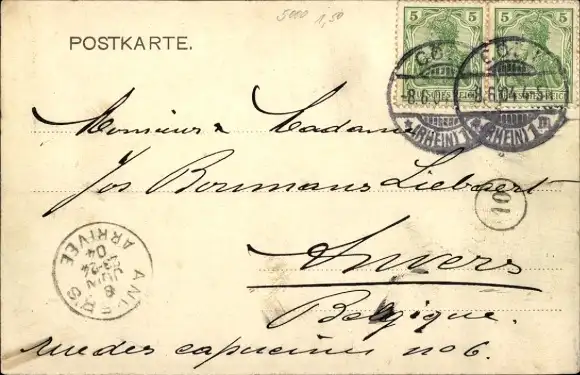 5000 1,50
POSTKARTE.
5 5
CÖLN CÖLN
8.6.04.4-5
(RHEIN) 1 (RHEIN) 1
Monsieur & Madame
Jos Bormans Liebaert
10
Anvers
Belgique.
rue des capucins no 6.
ANVERS
8
JUIN
23-24
04
ARRIVÉE